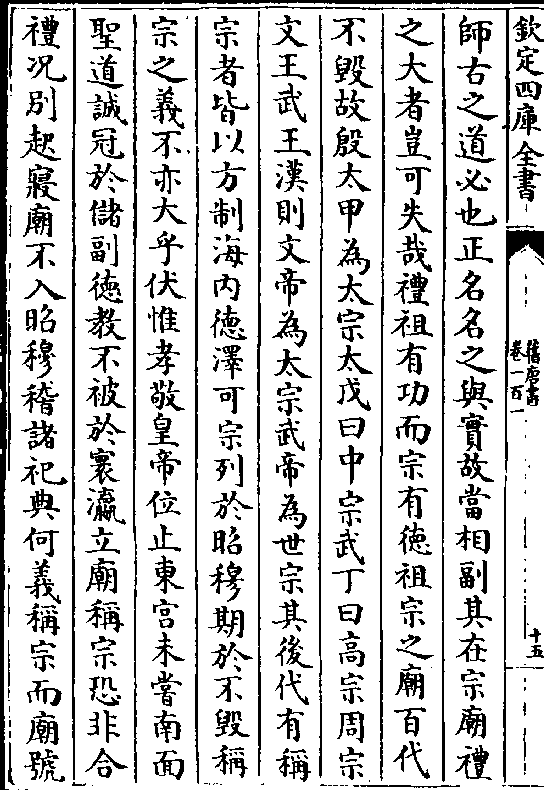 欽定四庫全書
舊唐書
卷一百一
十五
師古之道必也正名名之與實故當相副其在宗廟禮
之大者豈可失哉禮祖有功而宗有德祖宗之廟百代
不毀故殷太甲為太宗太戊曰中宗武丁曰高宗周宗
文王武王漢則文帝為太宗武帝為世宗其後代有稱
宗者皆以方制海內德澤可宗列於昭穆期於不毀稱
宗之義不亦大乎伏惟孝敬皇帝位止東宮未嘗南面
聖道誠冠於儲副德教不被於寰瀛立廟稱宗恐非合
禮况別起寢廟不入昭穆稽諸祀典何義稱宗而廟號